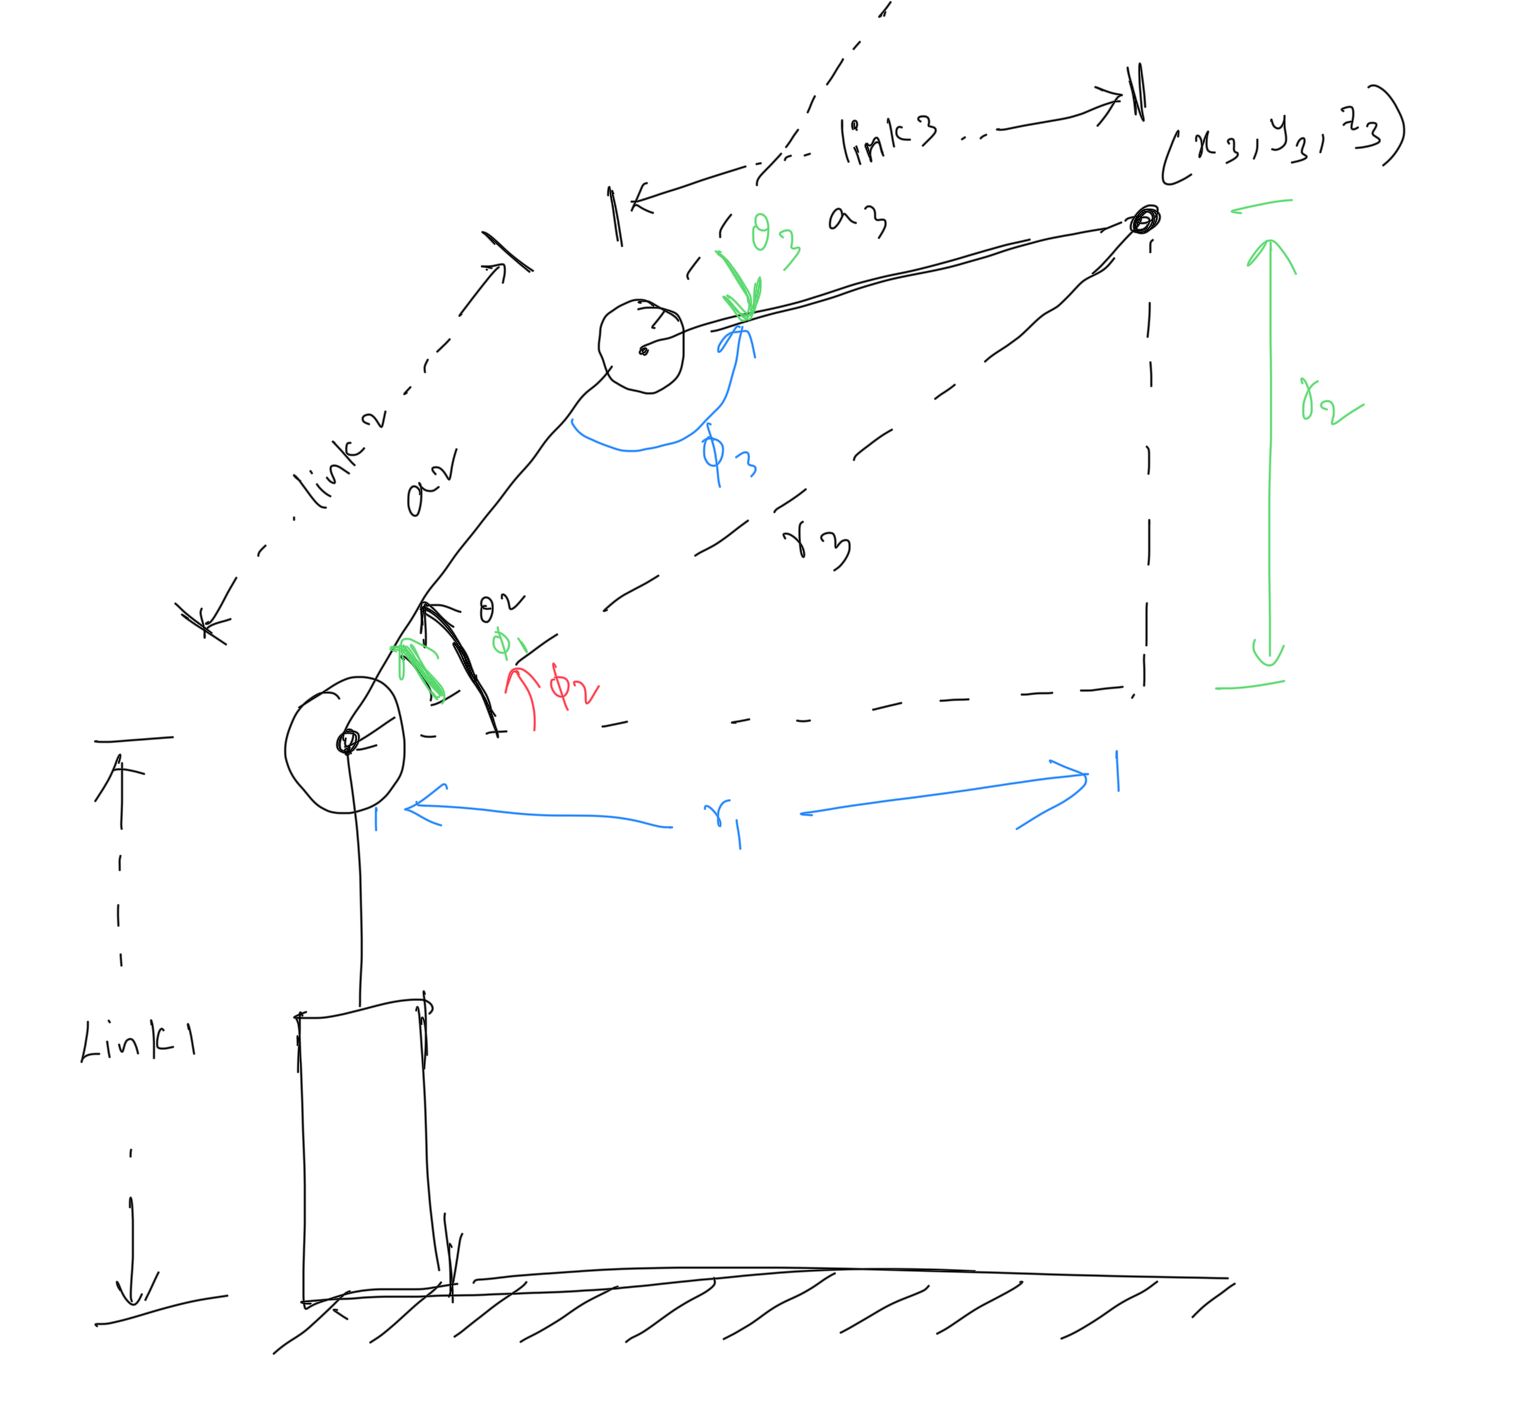 link3
(x3, y3, z3)
a3
θ3
r2
link2
a2
ϕ3
r3
θ2
ϕ1
ϕ2
r1
Link1